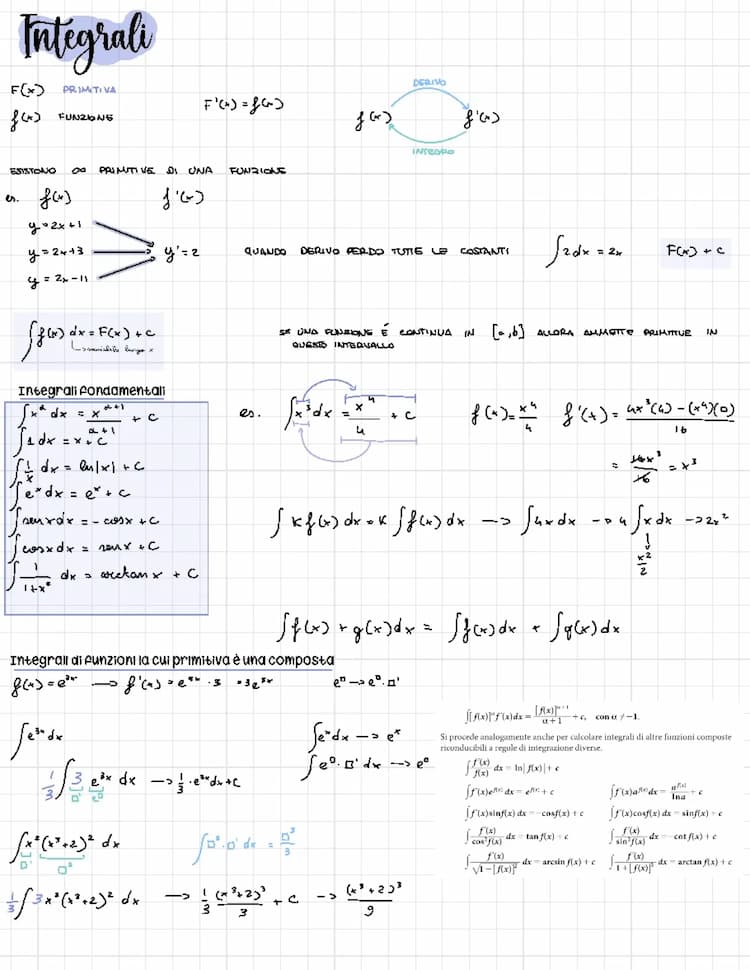 Integrali
F(x) PRIMITIVA
f(x) FUNZIONE
F'(x) = f(x)
DERIVO
f(x) f'(x)
INTEGRO
ESISTONO ∞ PRIMITIVE DI UNA FUNZIONE
es. f(x) f'(x)
y = 2x+1
y = 2x+3
y = 2x-11
y' = 2
QUANDO DERIVO PERDO TUTTE LE COSTANTI
∫2dx = 2x
F(x) + c
∫f(x) dx = F(x) + c
SE UNA FUNZIONE É CONTINUA IN [a,b] ALLORA AMMETTE PRIMITIVE IN
QUESTO INTERVALLO
Integrali fondamentali
∫x^α dx = x^(α+1)/(α+1) + C
∫1 dx = x + C
∫1/x dx = ln|x| + C
∫e^x dx = e^x + C
∫senx dx = -cosx + C
∫cosx dx = senx + C
∫1/(1+x²) dx = arctan x + C
es. ∫x³dx = x⁴/4 + C
f(x) = x⁴/4 f'(x) = (4x³(4) - (x⁴)(0))/16
= 16x³/16 = x³
∫Kf(x) dx = K∫f(x) dx → ∫4x dx → 4∫x dx → 2x²
x²/2
∫f(x) + g(x)dx = ∫f(x)dx + ∫g(x)dx
Integrali di funzioni la cui primitiva è una composta
f(x) = e^3x → f'(x) = e^3x · 3 = 3e^3x e^□ → e^□ · □'
∫e^3x dx
∫e^x dx → e^x
∫e^□ · □' dx → e^□
1/3 ∫3 e^3x dx → 1/3 · e^3x dx + C
□' e^□
∫x²(x³+2)² dx
□' □²
∫□² · □' dx = □³/3
1/3 ∫3x²(x³+2)² dx → 1/3 (x³+2)³/3 + C → (x³+2)³/9
∫[f(x)]^α f'(x)dx = [f(x)]^(α+1)/(α+1) + c, con α ≠ -1.
Si procede analogamente anche per calcolare integrali di altre funzioni composte
riconducibili a regole di integrazione diverse.
∫f'(x)/f(x) dx = ln|f(x)| + c
∫f'(x)e^f(x)dx = e^f(x) + c ∫f'(x)a^f(x)dx = a^f(x)/lna + c
∫f'(x)sinf(x) dx = -cosf(x) + c ∫f'(x)cosf(x) dx = sinf(x) + c
∫f'(x)/cos²f(x) dx = tan f(x) + c ∫f'(x)/sin²f(x) dx = -cot f(x) + c
∫f'(x)/√(1-[f(x)]²) dx = arcsin f(x) + c ∫f'(x)/(1+[f(x)]²) dx = arctan f(x) + c